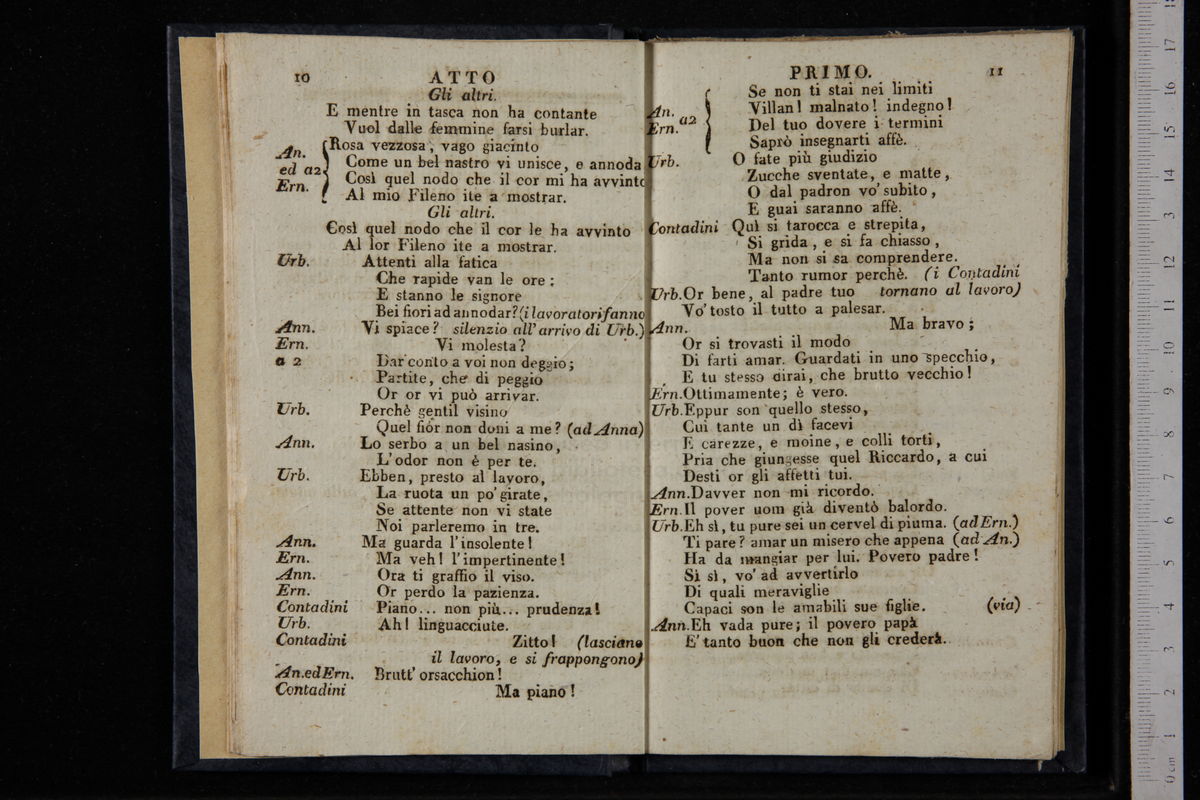 10 ATTO
Gli altri.
E mentre in tasca non ha contante
Vuol dalle femmine farsi burlar.
An. ed a2 Ern. { Rosa vezzosa, vago giacinto
Come un bel nastro vi unisce, e annoda
Così quel nodo che il cor mi ha avvinto
Al mio Fileno ite a mostrar.
Gli altri.
Così quel nodo che il cor le ha avvinto
Al lor Fileno ite a mostrar.
Urb. Attenti alla fatica
Che rapide van le ore:
E stanno le signore
Bei fiori ad annodar? (i lavoratori fanno
Ann. Vi spiace? silenzio all'arrivo di Urb.)
Ern. Vi molesta?
a 2 Dar conto a voi non deggio;
Partite, che di peggio
Or or vi può arrivar.
Urb. Perchè gentil visino
Quel fior non doni a me? (ad Anna)
Ann. Lo serbo a un bel nasino,
L'odor non è per te.
Urb. Ebben, presto al lavoro,
La ruota un po' girate,
Se attente non vi state
Noi parleremo in tre.
Ann. Ma guarda l'insolente!
Ern. Ma veh! l'impertinente!
Ann. Ora ti graffio il viso.
Ern. Or perdo la pazienza.
Contadini Piano... non più... prudenza!
Urb. Ah! linguacciute.
Contadini Zitto! (lasciano
il lavoro, e si frappongono)
An. ed Ern. Brutt' orsacchion!
Contadini Ma piano!
PRIMO. 11
An. Ern. a2 { Se non ti stai nei limiti
Villan! malnato! indegno!
Del tuo dovere i termini
Saprò insegnarti affè.
Urb. O fate più giudizio
Zucche sventate, e matte,
O dal padron vo' subito,
E guai saranno affè.
Contadini Quì si tarocca e strepita,
Si grida, e si fa chiasso,
Ma non si sa comprendere.
Tanto rumor perchè. (i Contadini
Urb. Or bene, al padre tuo tornano al lavoro)
Vo' tosto il tutto a palesar.
Ann. Ma bravo;
Or si trovasti il modo
Di farti amar. Guardati in uno specchio,
E tu stesso dirai, che brutto vecchio!
Ern. Ottimamente; è vero.
Urb. Eppur son quello stesso,
Cui tante un dì facevi
E carezze, e moine, e colli torti,
Pria che giungesse quel Riccardo, a cui
Desti or gli affetti tui.
Ann. Davver non mi ricordo.
Ern. Il pover uom già diventò balordo.
Urb. Eh sì, tu pure sei un cervel di piuma. (ad Ern.)
Ti pare? amar un misero che appena (ad An.)
Ha da mangiar per lui. Povero padre!
Sì sì, vo' ad avvertirlo
Di quali meraviglie
Capaci son le amabili sue figlie. (via)
Ann. Eh vada pure; il povero papà
E' tanto buon che non gli crederà.